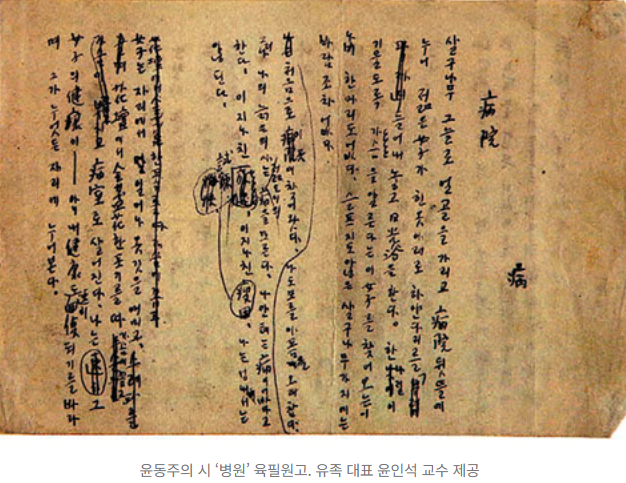 病
病院
살구나무 그늘로 얼골을 가리고 病院뒷뜰에
누어 젊은 女子가 흰옷아래로 하얀다리를
드러내 놓고 日光浴을 한다. 한나절이
기울도록 가슴을 알른다는 이 女子를 찾어 오는이
나비 한마리도 없다. 슬프지도 않은 살구나무가지에는
바람조차 없다.
처음으로 이곳에 찾어왔다. 나도모를 아픔을 오래 참다
그러나 나의 늙은 의사는 젊은이의 病을 모른다. 나한테는 病이 없다고
한다. 이 지나친 試鍊, 이 지나친 疲勞, 나는 성내서는
않된다.
女子는 자리에서 일어나 옷깃을 여미고,
花壇에서 金盞花 한포기를 따
가슴에 病室로 살어진다. 나는 그
女子의 健康이 — 아니 내 健康도 速히 回復되기를 바라
며 그가 누엇든 자리에 누어본다.
윤동주의 시 ‘병원’ 육필원고. 유족 대표 윤인석 교수 제공